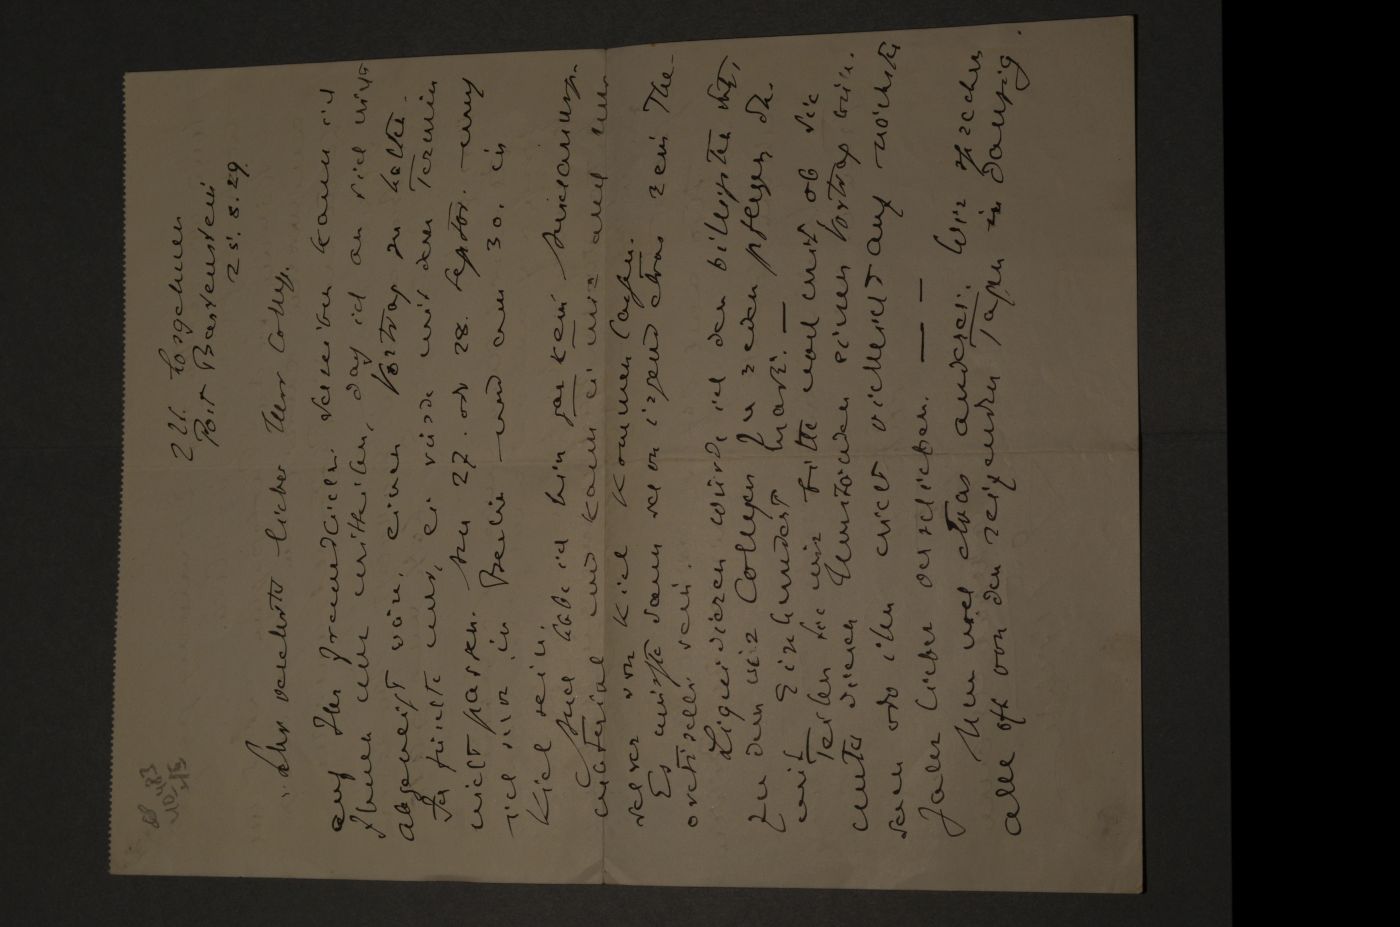 z. Zt. Losgehnen
Post Bartenstein
25.8.29.
Sehr verehrter lieber Herr College.
auf Ihr freundliches Schreiben kann ich
Ihnen nur mitteilen, daß ich an sich nicht
abgeneigt wäre, einen Vortrag zu halten.
Ich fürchte nur, es würde mit dem Termin
nicht passen. Am 27. oder 28. Septbr. muß
ich schon in Berlin und am 30. in
Kiel sein.
Auch habe ich hier gar kein Anschauungs-
material und kann es mir auch nur
schwer von Kiel kommen lassen.
Es müßte dann schon irgend etwas rein The-
oretisches sein.
Liquidieren würde ich den billigsten Satz,
zu dem wir Collegen zu reden pflegen d.h.
mit Einhundert Mark. —
Teilen Sie mir bitte noch mit ob Sie
unter diesen Umständen einen Vortrag wün-
schen oder ihn nicht vielleicht auf nächstes
Jahr lieber verschieben. — —
Nun noch etwas anderes: Wir sprechen
alle oft von den reizenden Tagen in Danzig.